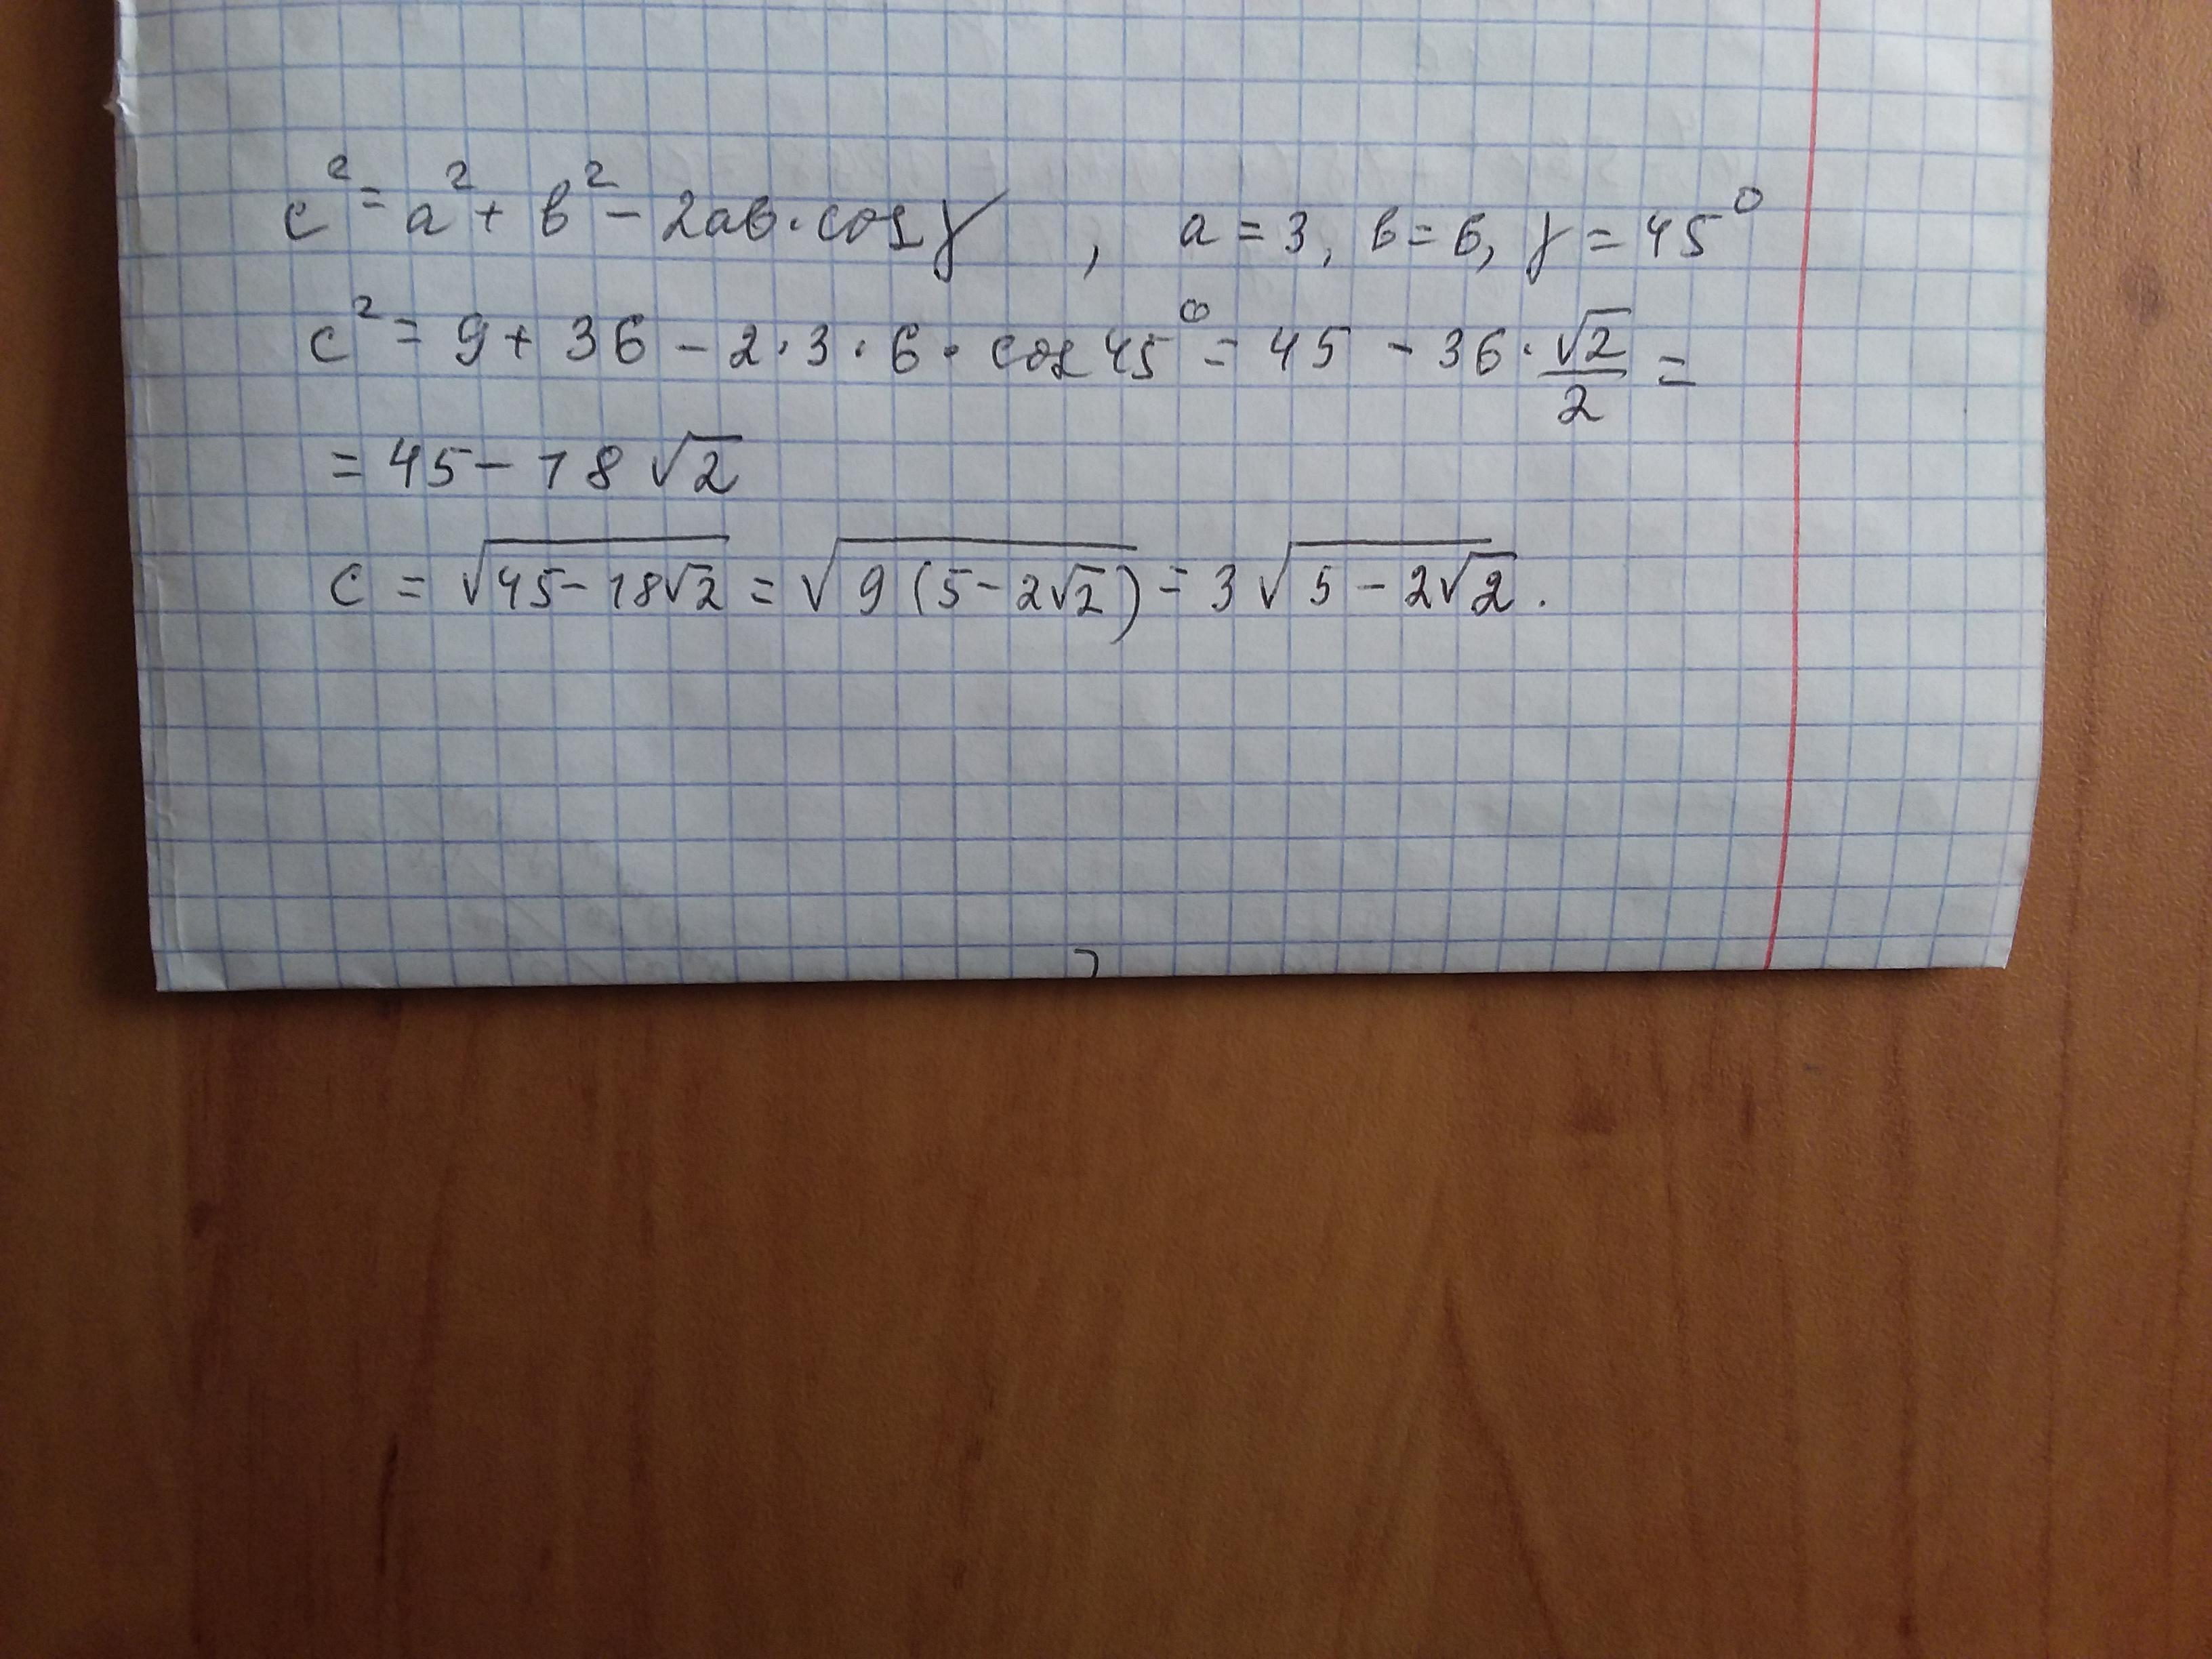 c² = a² + b² − 2ab · cos γ , a = 3, b = 6, γ = 45°
c² = 9 + 36 − 2 · 3 · 6 · cos 45° = 45 − 36 · √2/2 =
= 45 − 18 √2
c = √(45 − 18√2) = √(9 (5 − 2√2)) = 3 √(5 − 2√2) .